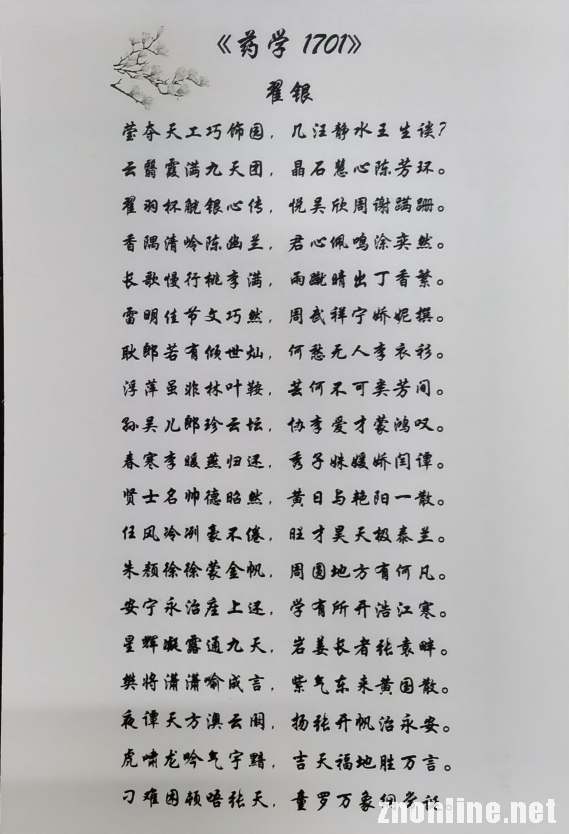 《药学 1701》
翟银
莹夺天工巧饰园，几汪静水王生谈？
云翳霞满九天团，晶石慧心陈芳环。
翟羽杯觥银心传，悦吴欣周谢蹒跚。
香隅清岭陈幽兰，君心佩鸣涂奕然。
长歌慢行桃李满，雨蹴晴出丁香繁。
雷明佳节文巧然，周武祥宁娇妮撰。
耿郎若有倾世灿，何愁无人李衣衫。
浮萍虽非林叶鞍，芸何不可类芳间。
孙吴儿郎珍云坛，协李爱才蒙鸿叹。
春寒李暖燕归还，秀子姝媛娇闫谭。
贤士名帅德昭然，黄日与艳阳一散。
任风冷冽豪不倦，旺才昊天极泰兰。
朱颜徐徐蒙金帆，周圆地方有何凡。
安宁永治座上还，学有所开浩江寒。
星辉凝露通九天，岩姜长者张袁畔。
樊将潇潇喻成言，紫气东来黄国散。
夜谭天方澳云阁，扬张开帆治永安。
虎啸龙吟气宇黯，吉天福地胜万言。
刁难困顿唔张天，童罗万象
znonline.net